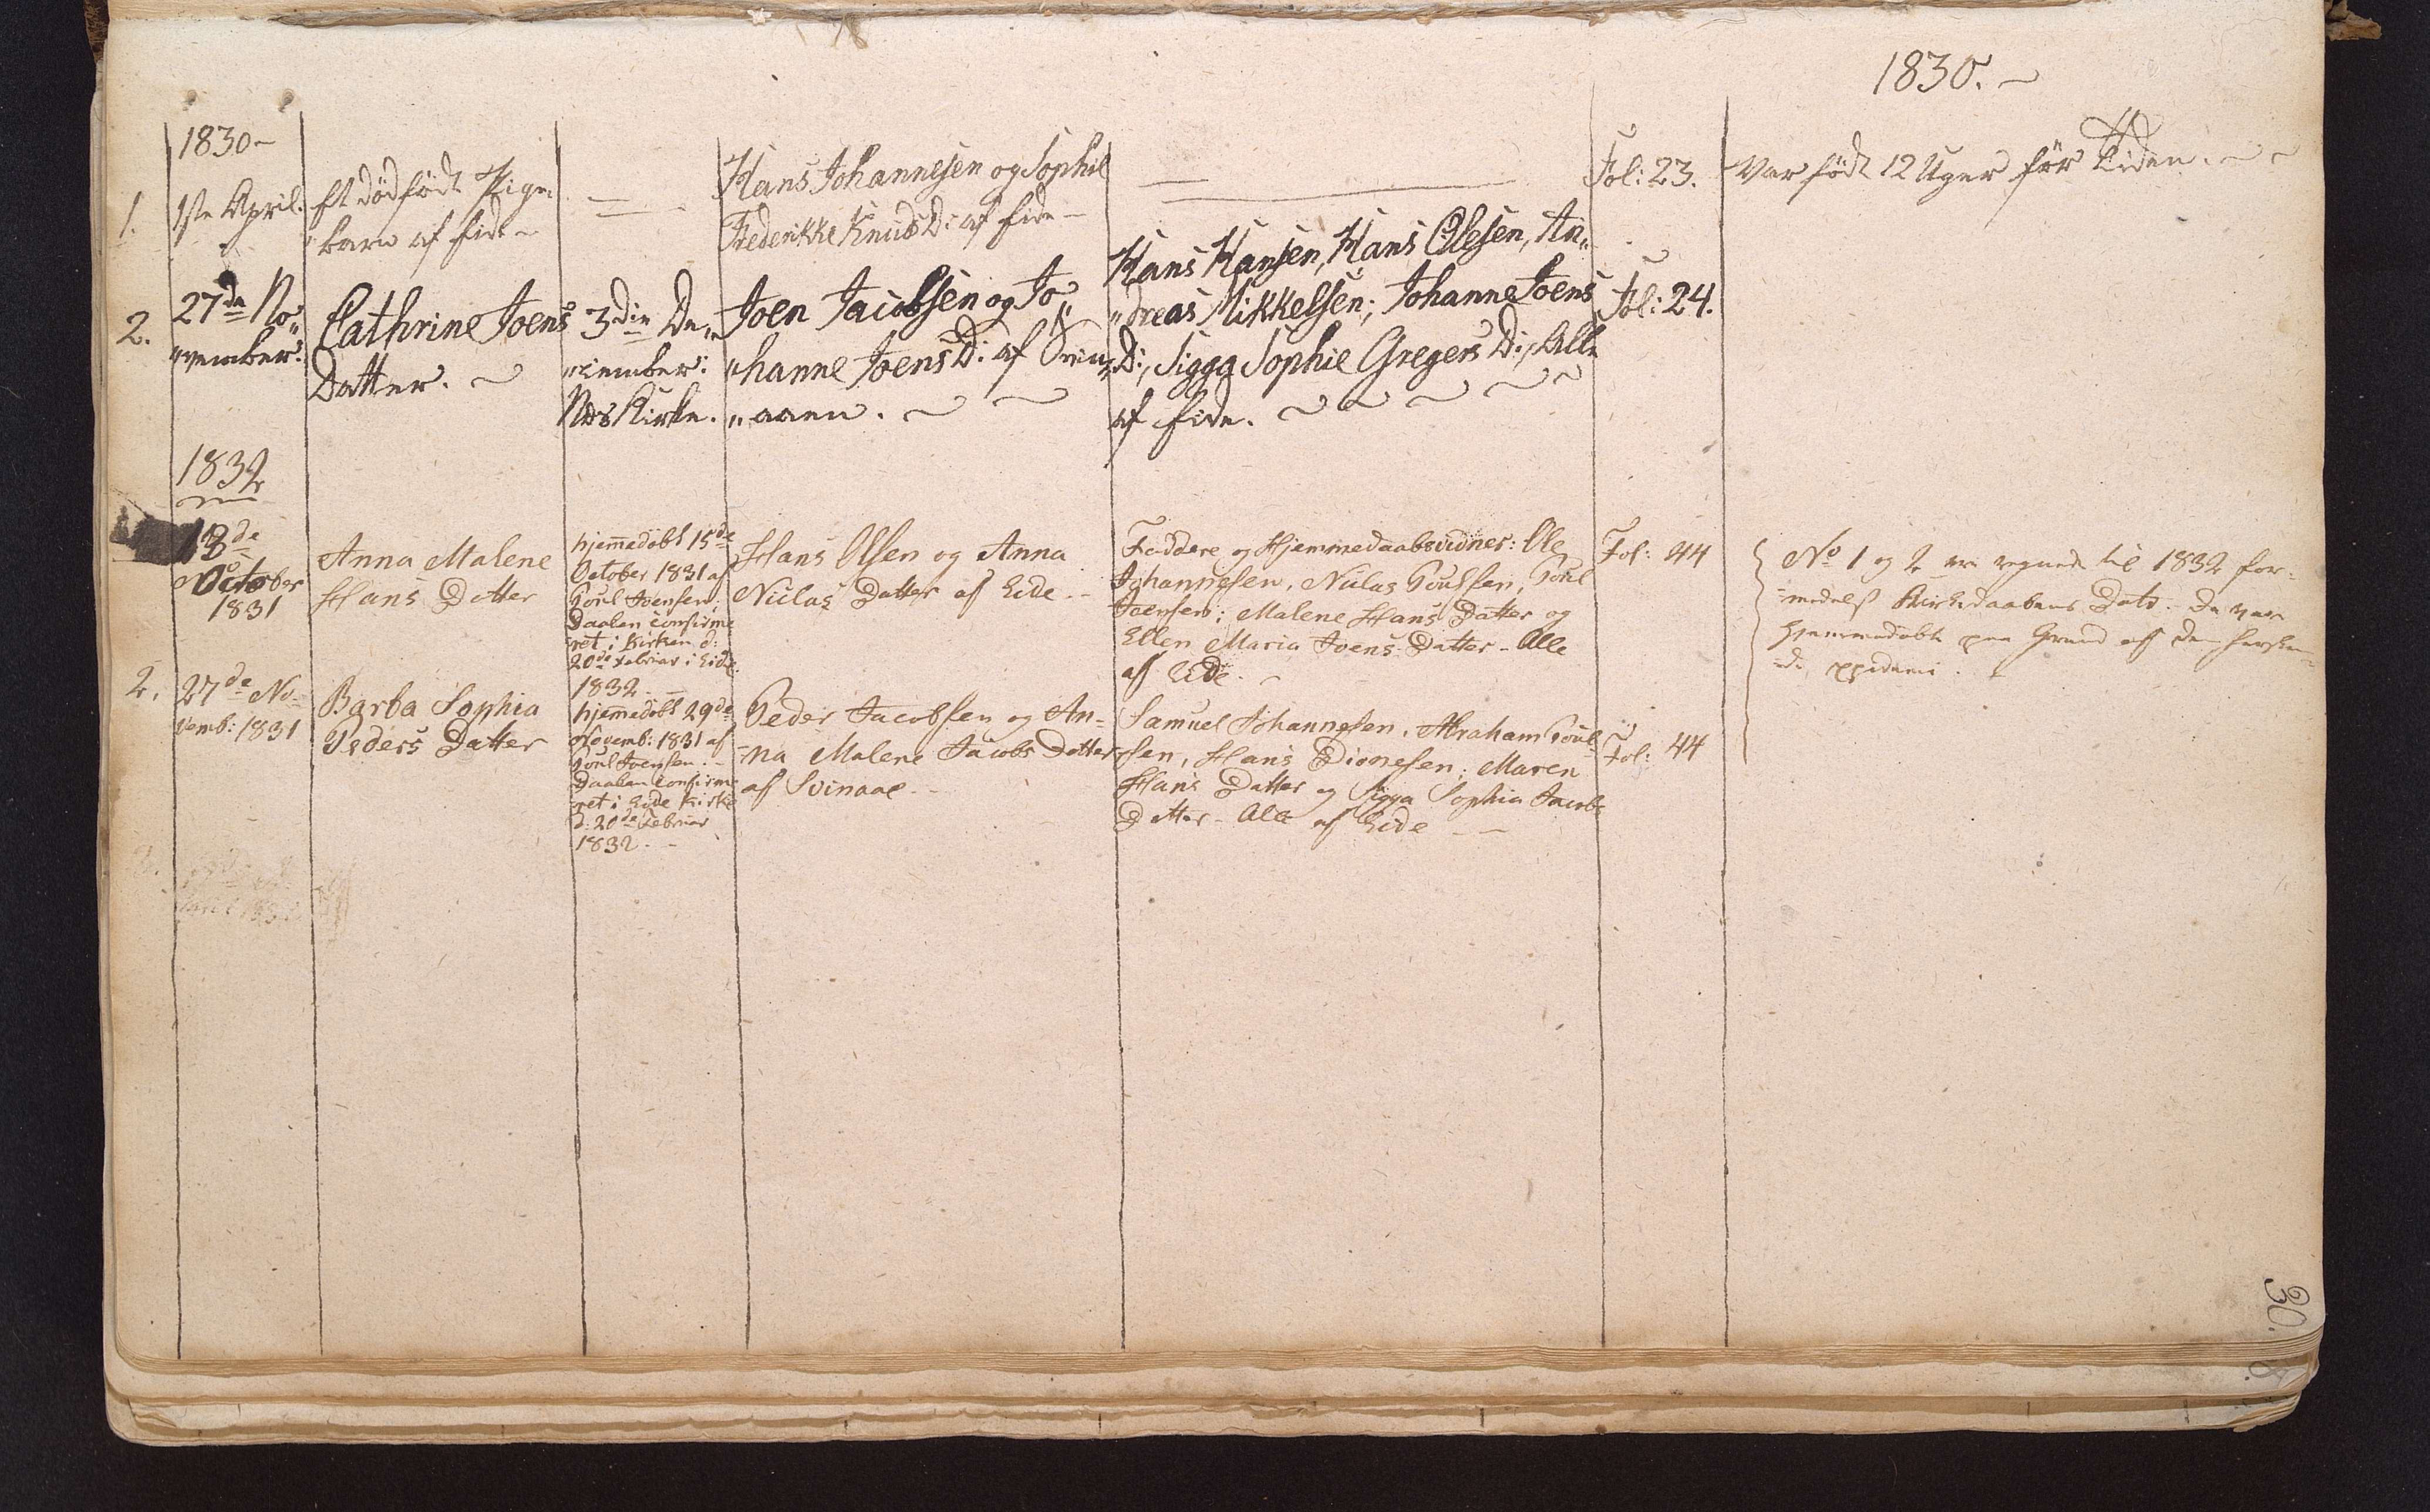 1830.
1830
1.
1ste April.
Et dødfødt Pige„
„barn af Eide
Hans Johannesen og Sophie
Frederikke Knuds D: af Eide
Fol: 23.
Var født 12 Uger før Tiden.
2.
27de No„
„vember:
Cathrine Joens
Datter.
3die De„
„cember:
Næs Kirke.
Joen Jacobsen og Jo„
„hanne Joens D: af Svin„
„aaen.
Hans Hansen, Hans Olesen, An„
„dreas Mikkelsen; Johanne Joens
D:, Sigga Sophie Gregers D:, Alle
af Eide.
Fol: 24.
1832
18de
October
1831
Anna Malene
Hans Datter
hjemedöbt 15de
October 1831 af
Poul Joensen;
Daaben confirme
ret i Kirken d:
20de Februar i Eide
1832.
Hans Olsen og Anna
Niclas Datter af Eide.
Faddere og Hjemmedaabsvidner: Ole
Johannesen, Niclas Poulsen, Poul
Joensen; Malene Hans Datter og
Ellen Maria Joens Datter - Alle
af Eide.
Fol: 44
No 1 og 2 ere regnede til 1832 for-
-medelst Kirkedaabens Dato. De vare
hjemmedøbte paa Grund af den hersken-
-de Epidemi.
2.
27de No-
vemb: 1831
Barba Sophia
Peders Datter
hjemedöbt 29de
Novemb: 1831 af
Poul Joensen.
Daaben confirme
ret i Eide Kirke
d: 20de Februar
1832.
Peder Jacobsen og An-
-na Malene Jacobs Datter
af Svinaae.
Samuel Johannesen, Abraham Poul-
sen, Hans Dionesen; Maren
Hans Datter og Sigga Sophia Jacobs
Datter - Alle af Eide
Fol: 44
30.